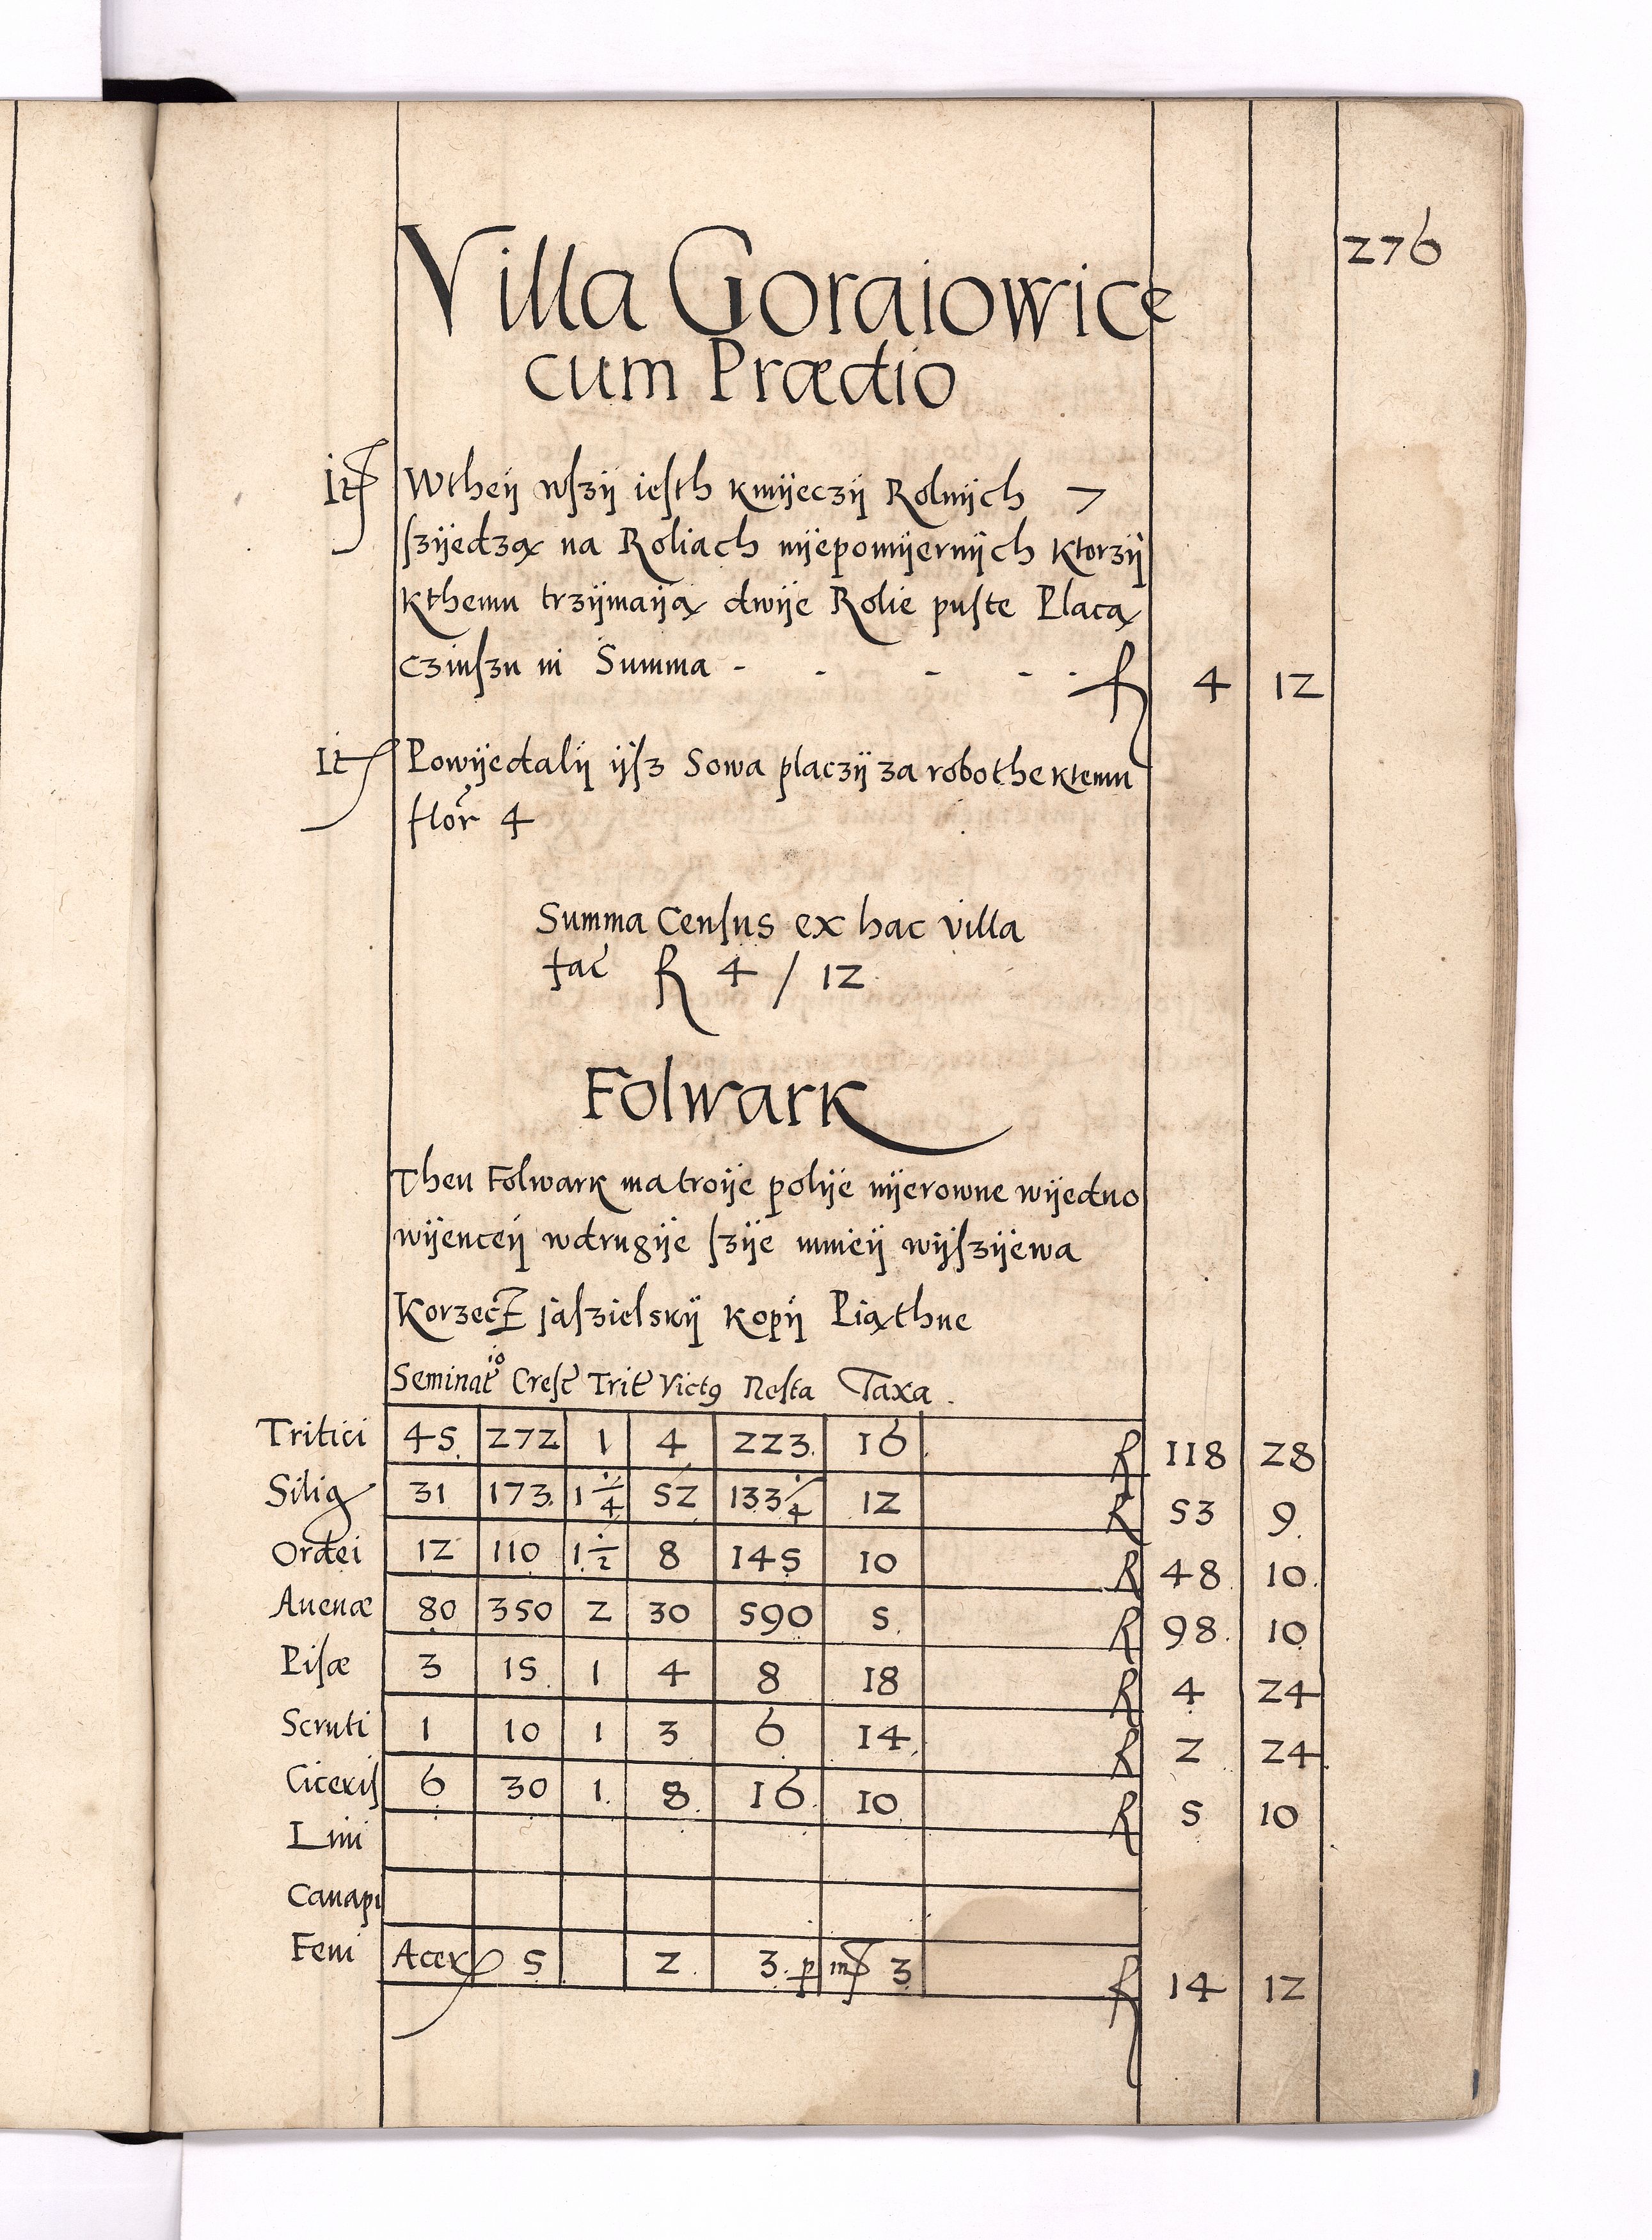 276
Villa Goraiowice
cum Prædio
Itē Wtheÿ wſzÿ ieſth kmÿeczÿ Rolnÿch 7
ſzÿedzą na Roliach nÿepomÿernÿch ktorzÿ
kthemu trzÿmaÿą dwÿe Rolie puſte Placą
czinſzu in Summa - - - - . ƒ 4 12
Itē Powÿedalÿ ÿſz Sowa placzÿ za robothe ktemu
flor̄ 4
Summa Cenſus ex hac villa
fac̄ ƒ 4 / 12
Folwark
Then Folwark ma troÿe polÿe nÿerowne wÿedno
wÿenceÿ wdrugÿe ſzÿe mnieÿ wÿſzÿewa
Korzecz jaſzielskÿ kopÿ Piąthne
Seminatio Creſc̄ Trit̄ Victꝰ Reſta Taxa .
Tritici 45 272 1 4 223 16 ƒ 118 28
Silig 31 173 1 1/4 52 133 1/4 12 ƒ 53 9
Ordei 12 110 1 1/2 8 145 10 ƒ 48 10
Auenæ 80 350 2 30 590 5 ƒ 98 10
Piſæ 3 15 1 4 8 18 ƒ 4 24
Scruti 1 10 1 3 6 14 ƒ 2 24
Ciceriſ 6 30 1 8 16 10 ƒ 5 10
Lini
Canapi
Feni Acer 5 2 3 p m 3 ƒ 14 12